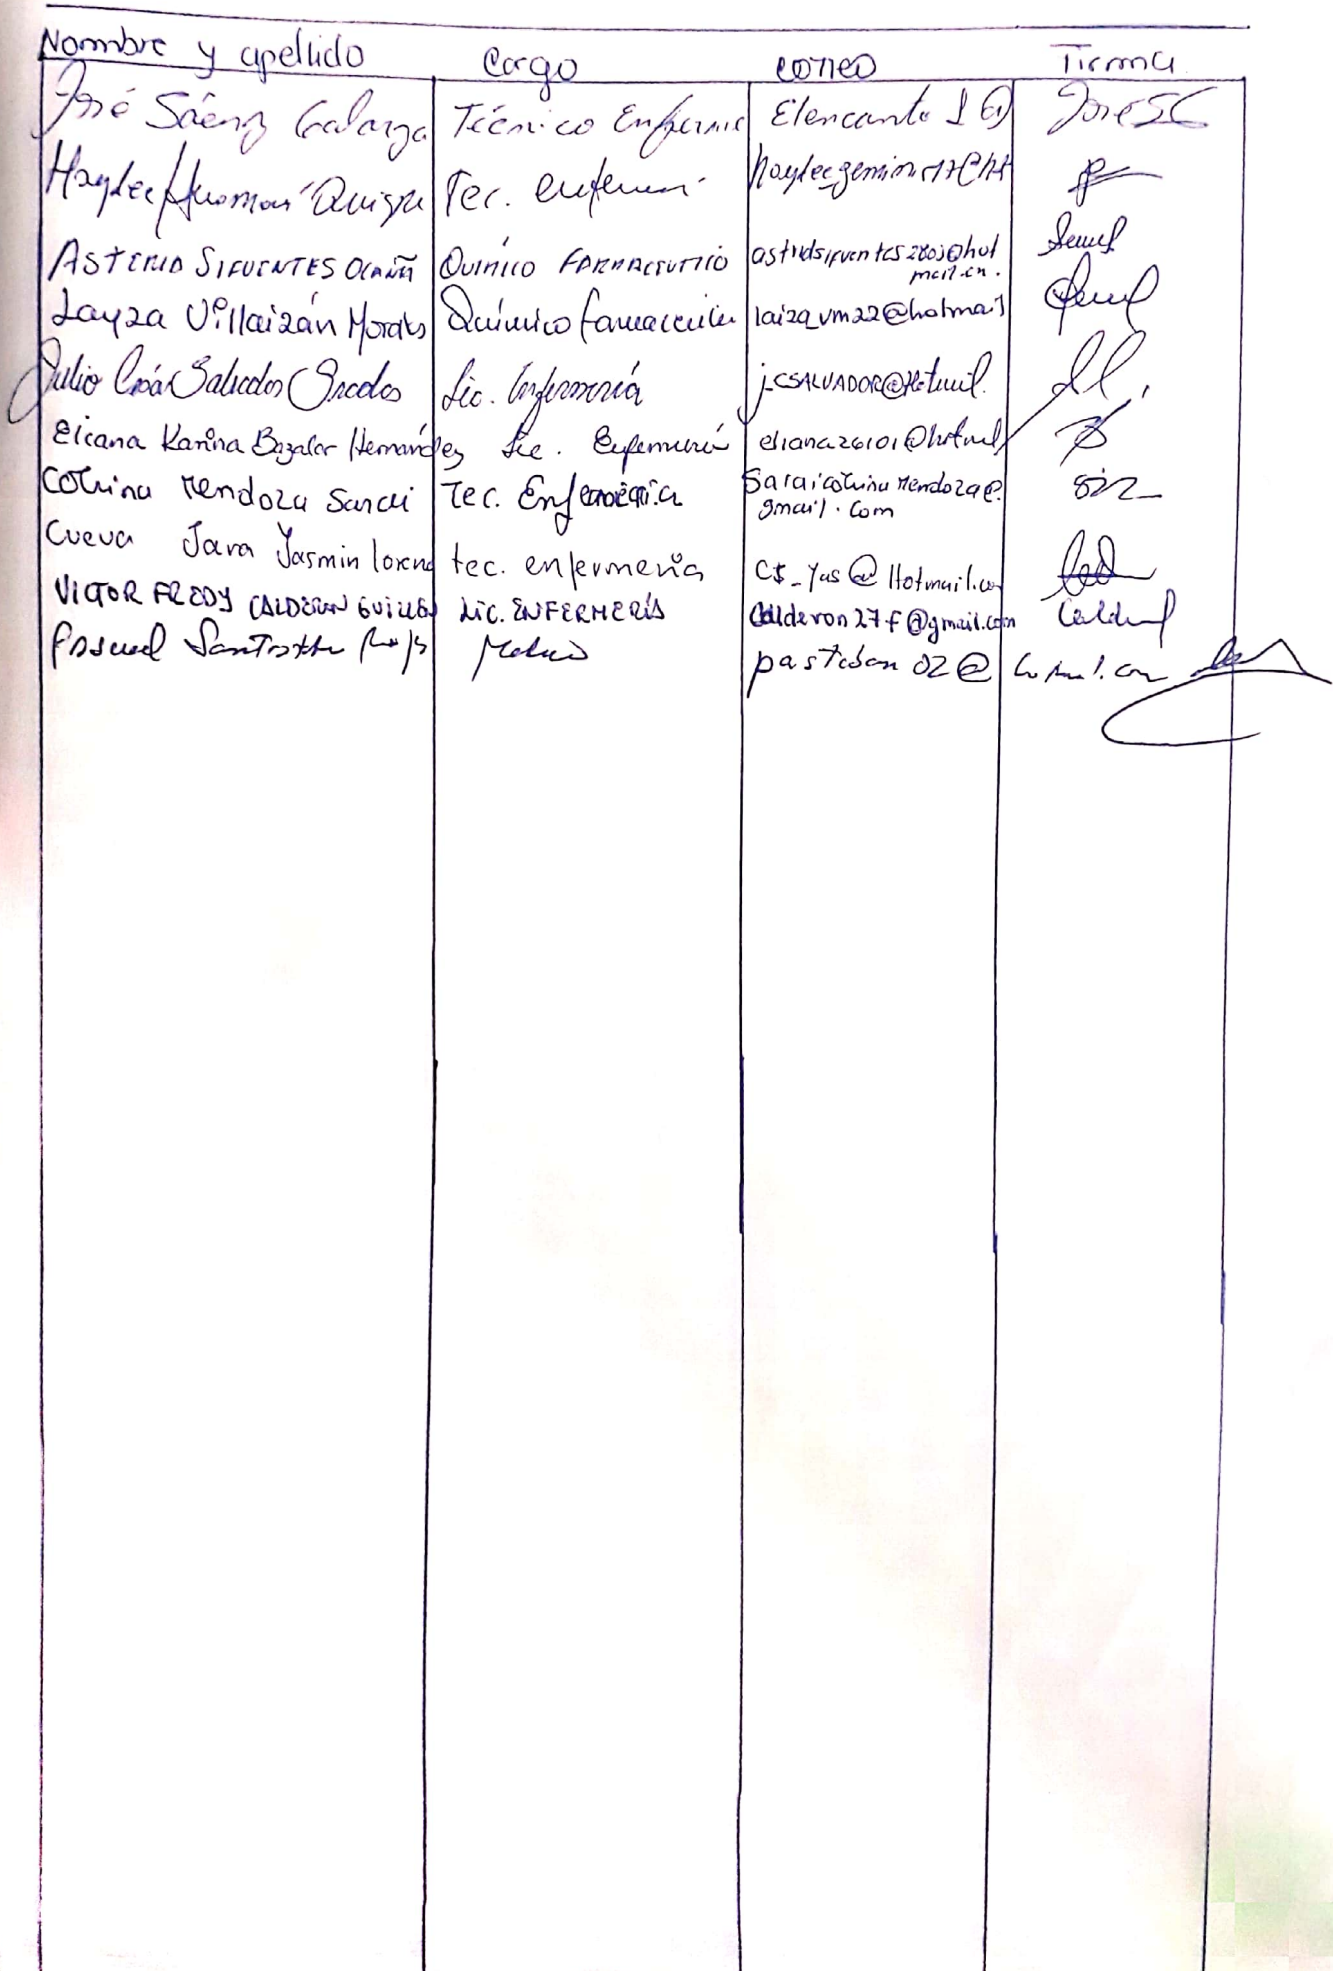 Nombre y apellido Cargo correo Firma
José Sáenz Galarza Técnico Enferme Elencanto 1 @ José SG
Haydee Huamán Tec. enfermi
ASTERIA SIFUENTES OCAÑA QUIMICO FARMACEUTICO astridsifuentes2803@hot
mail.cn.
Layza Villaizán Morales Químico farmaceutico laiza_vm22@hotmail
Julio César Salvador Lic. Enfermería jcSALVADOR@Hotmail.
Eliana Karina Bazalar Hernández Lic. Enfermería eliana26101@hotmail
Cotrina Mendoza Sarai Tec. Enfermería Saraicotrina Mendoza@
gmail.com
Cueva Jara Yasmin lorena tec. enfermería CJ_Yas@Hotmail.co
VICTOR FREDY CALDERON GUILLEN LIC. ENFERMERÍA Calderon27f@gmail.com
Medico 02@